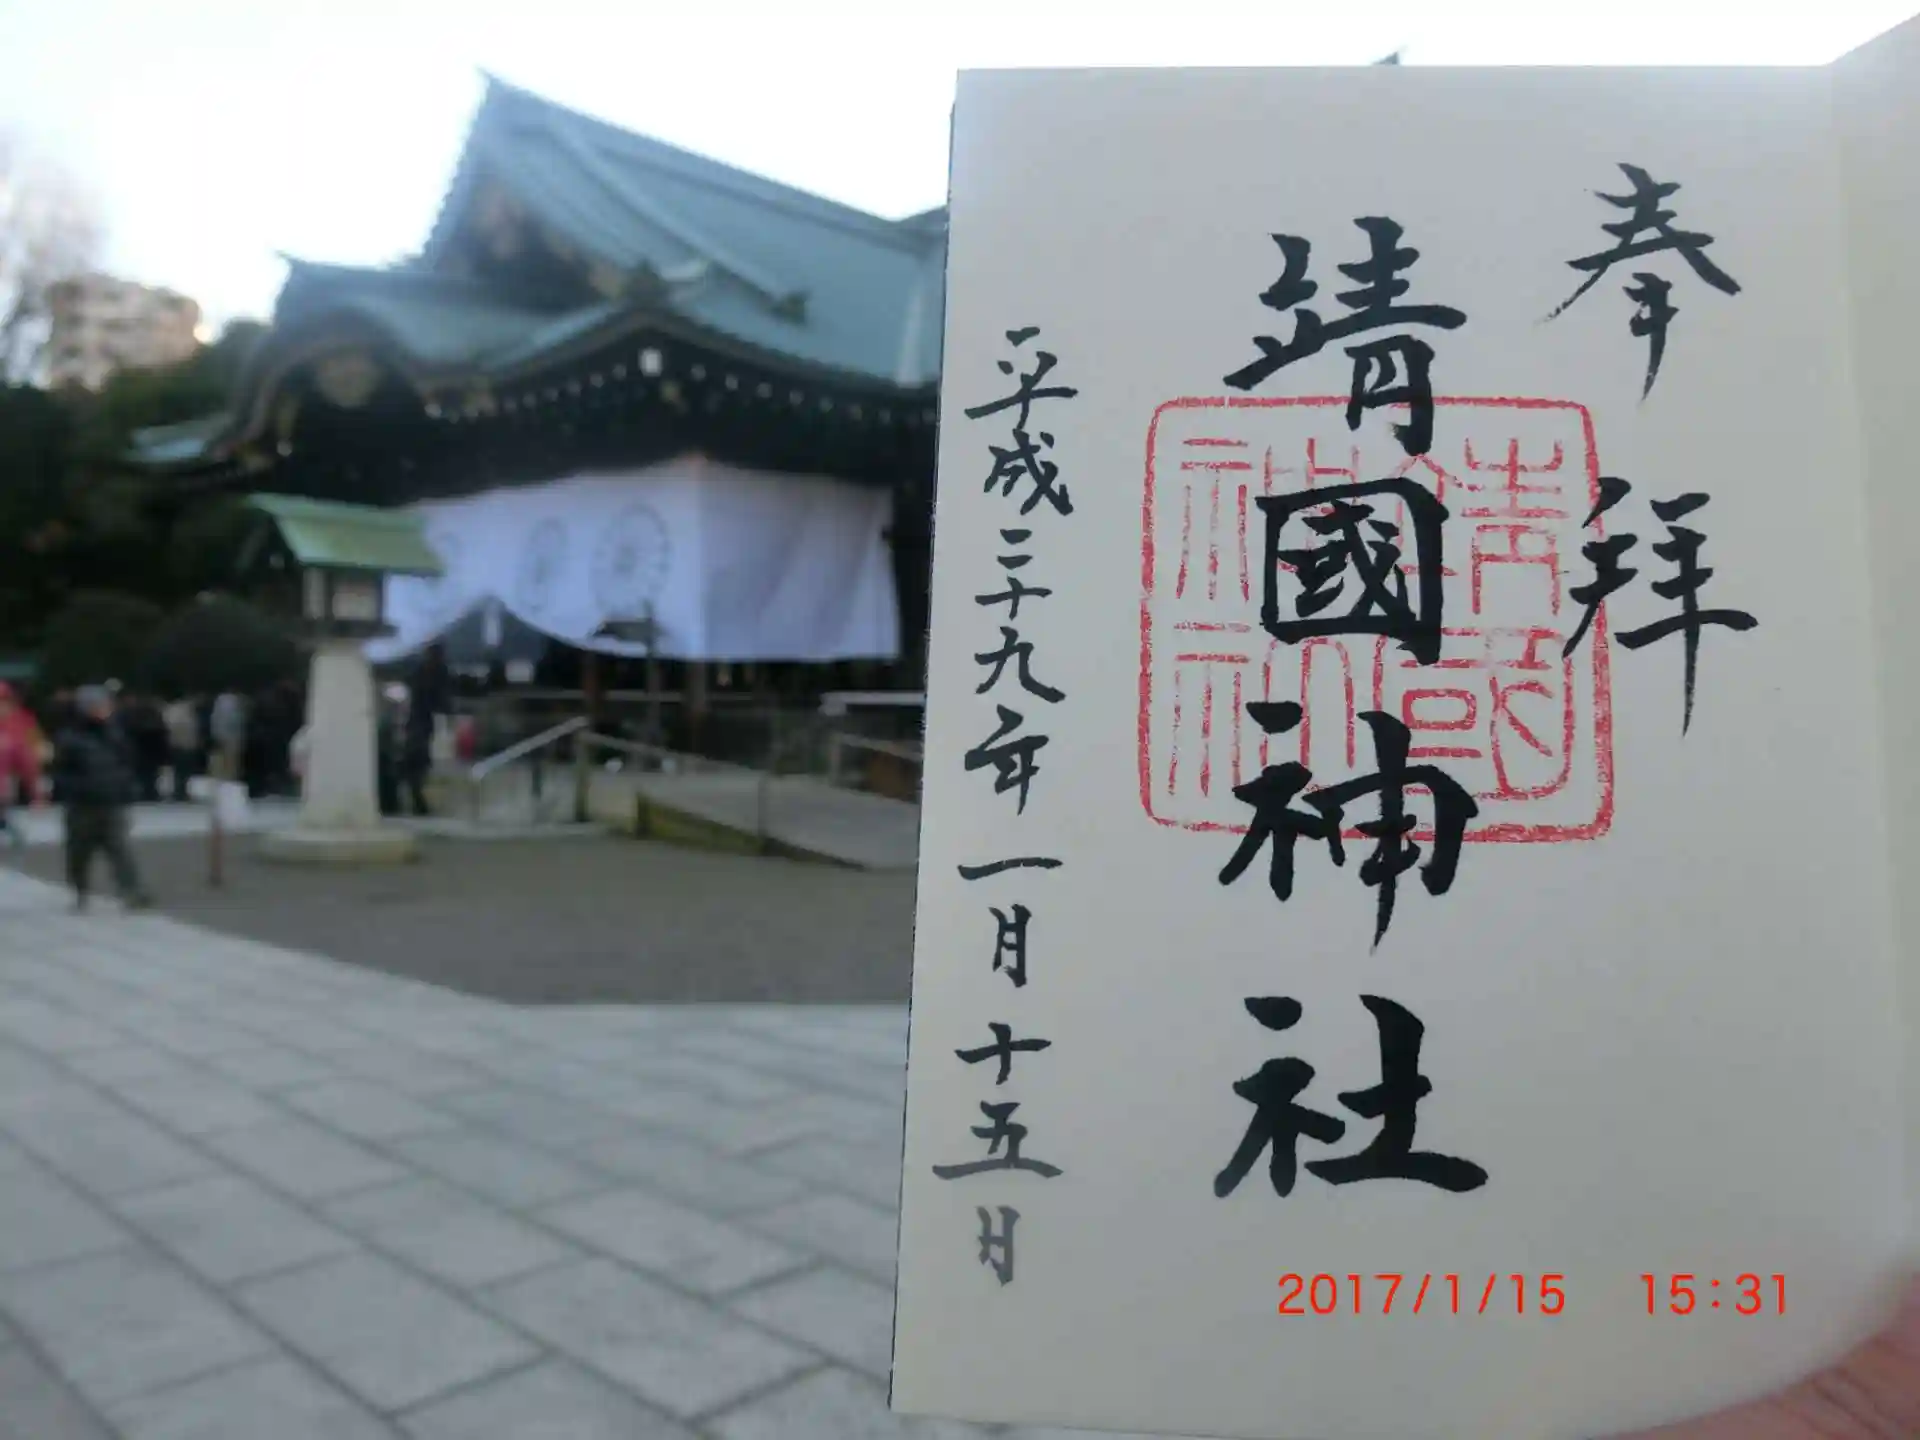 奉拝
靖國神社
靖國神社
平成二十九年一月十五日
2017/1/15 15:31